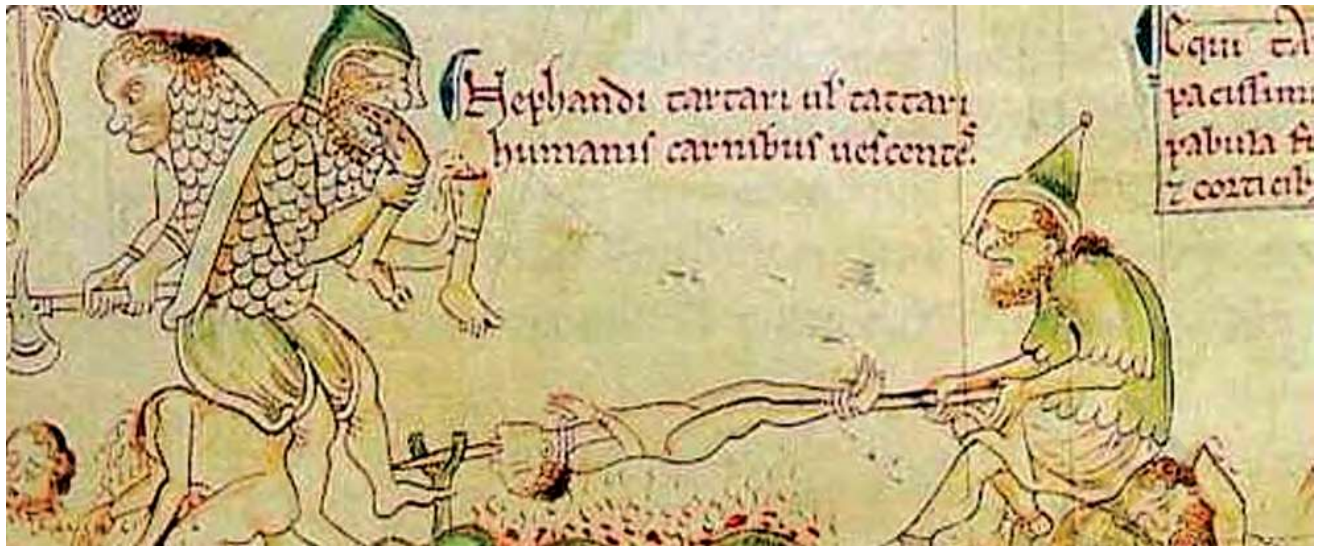 Nephandi tartari ul' tattari
humanis carnibus uescentes.
Equi
pabula
⁊ corticib